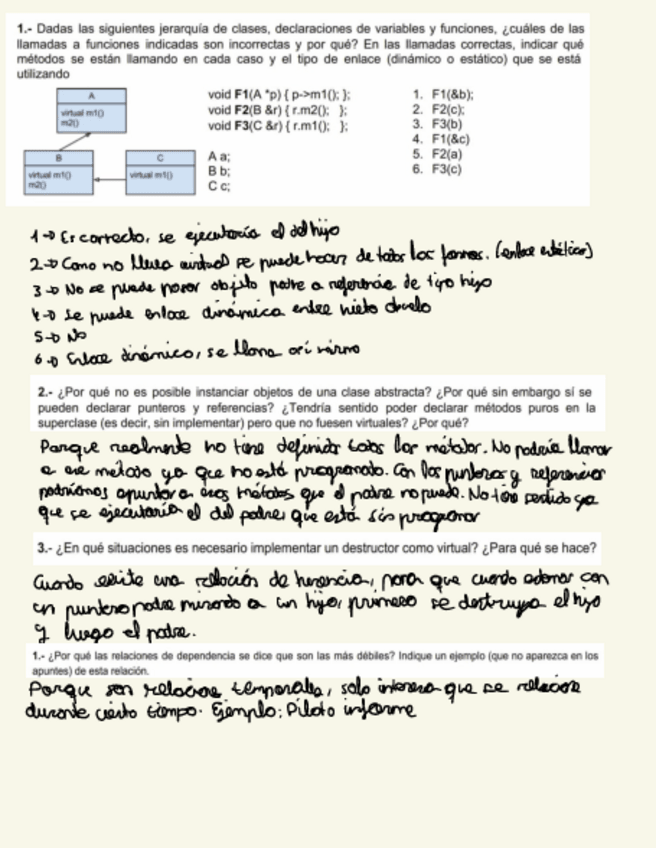 1.- Dadas las siguientes jerarquía de clases, declaraciones de variables y funciones, ¿cuáles de las
llamadas a funciones indicadas son incorrectas y por qué? En las llamadas correctas, indicar qué
métodos se están llamando en cada caso y el tipo de enlace (dinámico o estático) que se está
utilizando
A
virtual m1()
m2()
B
virtual m1()
m2()
C
virtual m1()
void F1(A *p) { p->m1(); };
void F2(B &r) { r.m2(); };
void F3(C &r) { r.m1(); };
A a;
B b;
C c;
1. F1(&b);
2. F2(c);
3. F3(b)
4. F1(&c)
5. F2(a)
6. F3(c)
1-> Es correcto, se ejecutaría el del hijo
2-> Como no lleva virtual se puede hacer de todas las formas. (enlace estático)
3-> No se puede pasar objeto padre a referencia de tipo hijo
4-> Se puede enlace dinámica entre nieto abuelo
5-> No
6-> Enlace dinámico, se llama a sí mismo
2.- ¿Por qué no es posible instanciar objetos de una clase abstracta? ¿Por qué sin embargo sí se
pueden declarar punteros y referencias? ¿Tendría sentido poder declarar métodos puros en la
superclase (es decir, sin implementar) pero que no fuesen virtuales? ¿Por qué?
Porque realmente no tiene definidos todos los métodos. No podría llamar
a ese método ya que no está programado. Con los punteros y referencias
podríamos apuntar a esos métodos que el padre no puede. No tiene sentido ya
que se ejecutaría el del padre que está sin programar
3.- ¿En qué situaciones es necesario implementar un destructor como virtual? ¿Para qué se hace?
Cuando existe una relación de herencia, para que cuando estamos con
un puntero padre mirando a un hijo, primero se destruya el hijo
y luego el padre.
1.- ¿Por qué las relaciones de dependencia se dice que son las más débiles? Indique un ejemplo (que no aparezca en los
apuntes) de esta relación.
Porque son relaciones temporales, solo interesa que se relacione
durante cierto tiempo. Ejemplo: Piloto informe